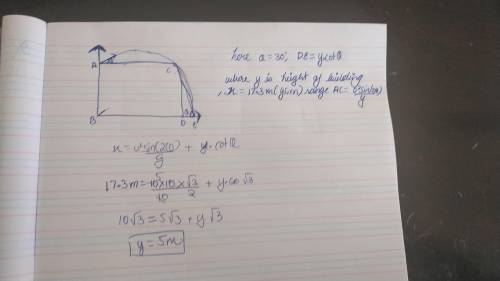 here a = 30°, DE = ycotθ
where y is height of building
A
C
B
D
E
x = 17.3m (given) range AC = u²sin(2α)/g
x = u²sin(2α)/g + y·cotθ
17.3m = 10×10×√3/10 2 + y.√3
10√3 = 5√3 + y√3
y = 5m